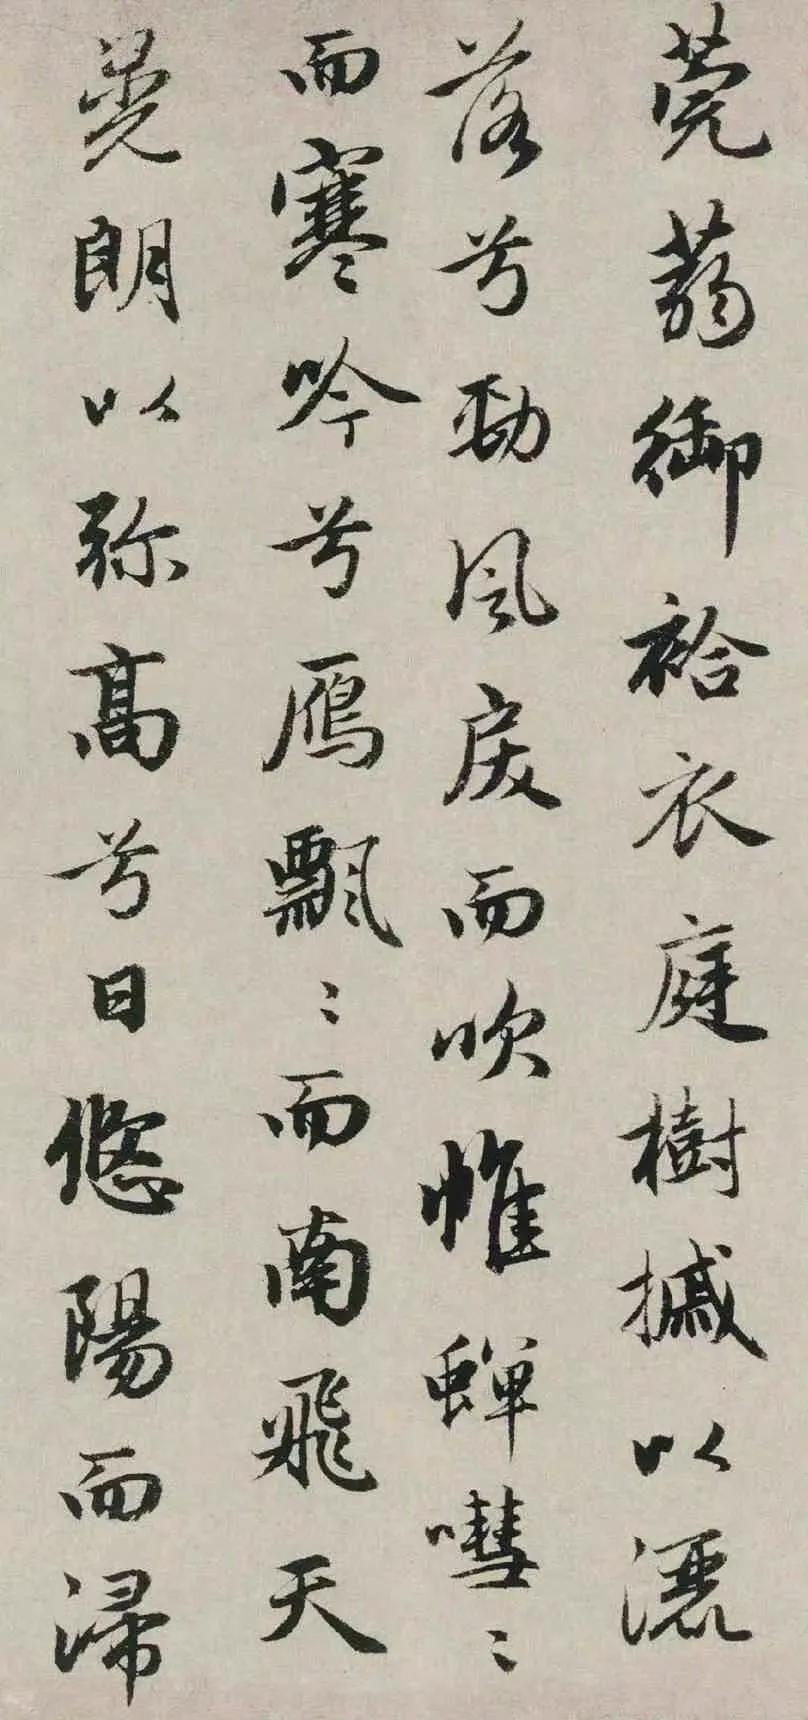 莞蒻御袷衣庭樹摵以灑
落兮勁風戾而吹帷蟬嘒〻
而寒吟兮鴈飄〻而南飛天
晃朗以弥高兮日悠陽而